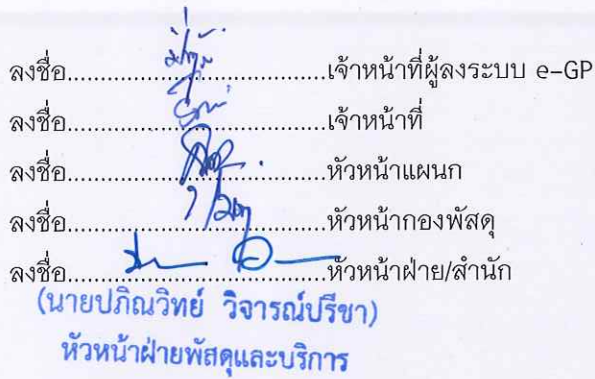 ลงชื่อ..............................เจ้าหน้าที่ผู้ลงระบบ e-GP
ลงชื่อ..............................เจ้าหน้าที่
ลงชื่อ..............................หัวหน้าแผนก
ลงชื่อ..............................หัวหน้ากองพัสดุ
ลงชื่อ..............................หัวหน้าฝ่าย/สำนัก
(นายปภิณวิทย์ วิจารณ์ปรีชา)
หัวหน้าฝ่ายพัสดุและบริการ